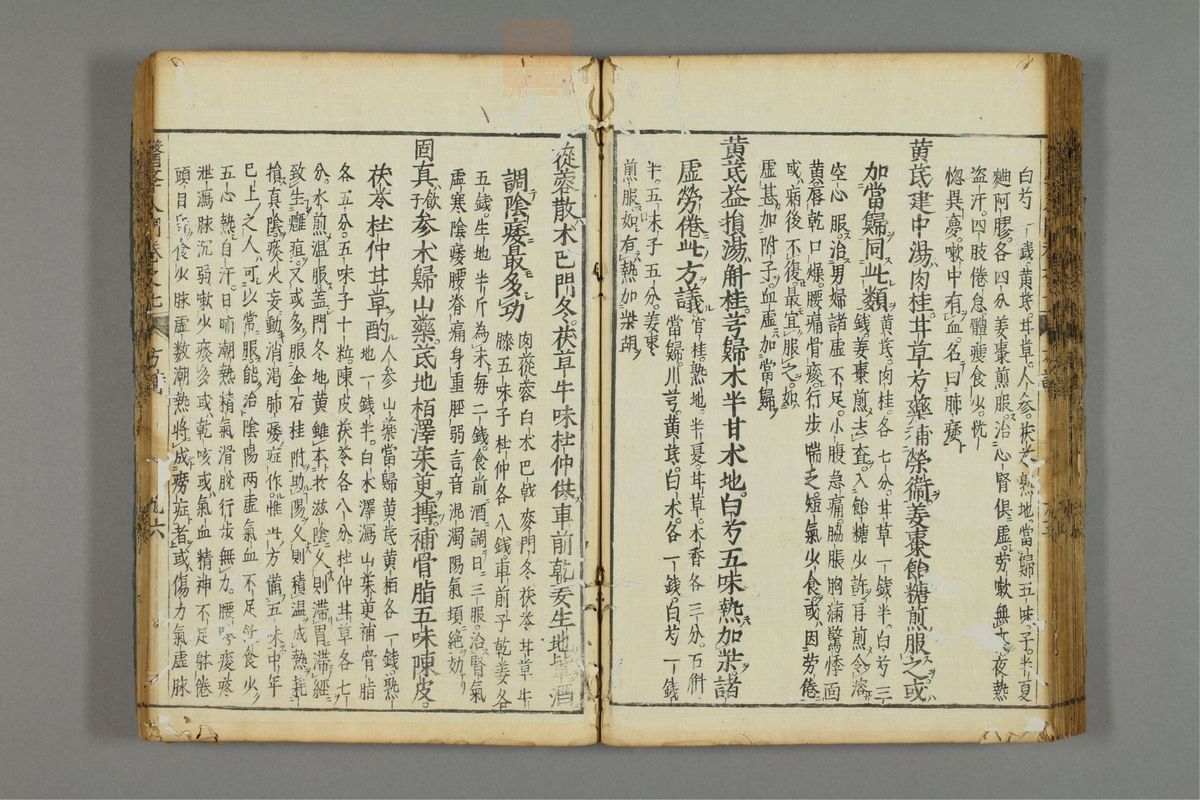 白芍一錢黃芪甘草人參茯苓熟地當歸五味子半夏
麯阿膠各四分姜棗煎服治心腎俱虛勞嗽無 夜熱
盜汗四肢倦怠體瘦食少恍
惚異夢嗽中有血名曰肺痿
黄芪建中湯肉桂甘草芍藥補榮衞姜棗飴糖煎服之或
加當歸同此類
黄芪肉桂各七分甘草一錢半白芍三
錢姜棗煎去査入飴糖少許再煎令溶
空心服治男婦諸虛不足小腹急痛脇脹胸滿驚悸面
黄唇乾口燥腰痛骨痠行步喘乏短氣少食或因劳倦
或病後不復最宜服之如
虛甚加附子血虛加當歸
黄芪益損湯觧桂芎歸木半甘术地白芍五味熱加柴諸
虛勞倦此方議
官桂熟地半夏甘草木香各三分石斛
當歸川芎黄芪白术各一錢白芍一錢
半五味子五分姜棗
煎服如有熱加柴胡
從蓉散术巴門冬茯草牛味杜仲供車前乾姜生地 酒
調陰痿最多功
肉蓯蓉白术巴戟麥門冬茯苓甘草牛
膝五味子杜仲各八錢車前子乾姜各
五錢生地半斤為末每二錢食前酒調日三服治腎氣
虛寒陰痿腰脊痛身重脛弱言音混濁陽氣頓絶効
固真飲子參术歸山藥芪地栢澤茱更摶補骨脂五味陳皮
茯苓杜仲甘草酌
人參山藥當歸黄芪黄栢各一錢熟
地一錢半白木澤瀉山茱更補骨脂
各五分五味子十粒陳皮茯苓各八分杜仲甘草各七
分水煎温服盖門冬地黄雖本於滋陰久則滞胃滞經
致生癰疽又或多服金石桂附助陽久則積温成熱耗
損真陰痰火妄動消渴肺痿症作惟此方備五味中年
巳上之人可以常服能治陰陽兩虛氣血不足飮食少
五心熱自汗日晡潮熱精氣滑脫行步無力腰 痠疼
泄瀉脉沉弱嗽少痰多或乾咳或氣血精神不足躰倦
頭目 食少脉虛数潮熱將成癆症者或傷力氣虛脉